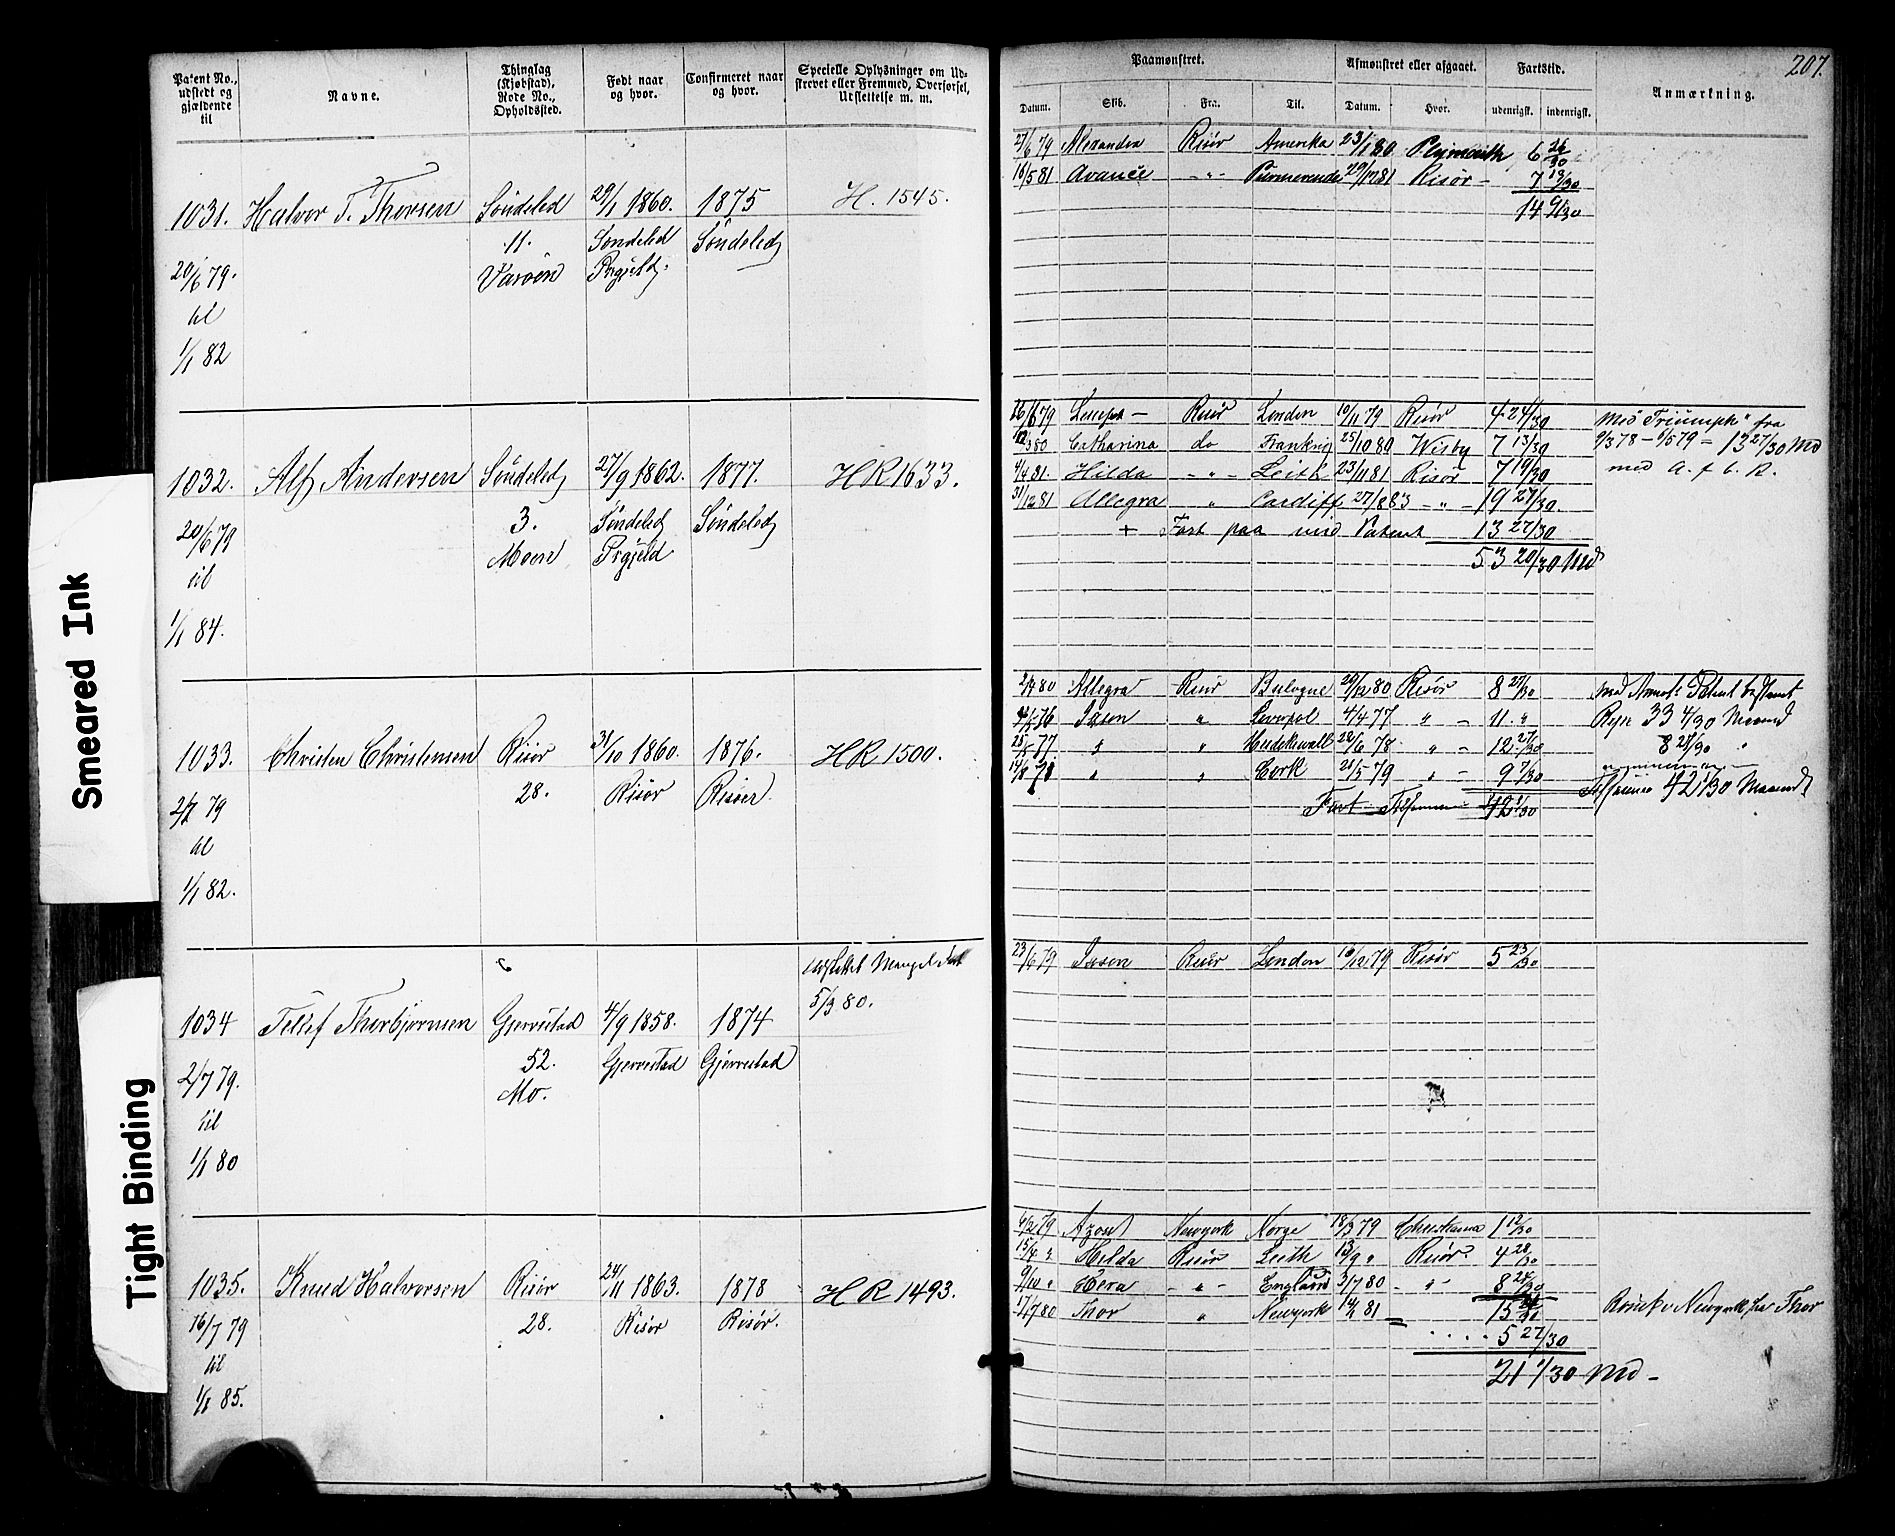 207.
Patent No., udstedt og gjældende til
Navne.
Thinglag (Kjøbstad), Rode No., Opholdssted.
Født naar og hvor.
Confirmeret naar og hvor.
Specielle Oplysninger om Udskrevet eller Fremmed, Overførsel, Udslettelse m. m.
Paamønstret.
Afmønstret eller afgaaet.
Fartstid.
Anmærkning.
Datum. Skib. Fra. Til. Datum. Hvor. udenrigsk. indenrigsk.
1031. Halvor T. Thorsen Söndeled 29/1 1860. 1875 H. 1545.
11. Söndeled Söndeled
20/6 79. Varöen Prgjeld.
til
1/1 82
27/6 79 Alexandra Risör Amerika 23/1 80 Plymouth 6 26/30
16/5 81 Avance - " - 29/12 81 Risör - 7 13/30
14 9/30
1032. Alf Andersen Söndeled 27/9 1862. 1877. HR 1633.
20/6 79 3. Söndeled Söndeled
til Moen Prgjeld
1/1 84.
26/6 79 Risör London 10/11 79 Risör 4 24/30
12/3 80 Catharina do Frankrig 25/10 80 Wisby 7 13/30
4/4 81. Hilda - " - Leith 23/11 81 Risör 7 19/30
31/12 81 Allegra " Cardiff 27/8 83 - " - 19 27/30.
+ Fart paa med Patent 13 27/30
53 20/30 Md
Med "Triumph" fra
9/3 78 - 6/5 79 = 13 27/30 Md
med A. f C. R.
1033. Christen Christensen Risör 31/10 1860. 1876. HR 1500.
2/7 79 28. Risör Risöer.
til
1/1 82.
2/4 80 Allegra Risör Bulogne 29/12 80 Risör 8 27/30
4/5 76 Jason " Leverpol 4/4 77 " - 11 "
25/5 77 " " Hudikswall 22/6 78. " - 12 27/30
14/8 78 " " Cork 21/5 79 " - 9 7/30
Fart Tilsammen 42 1/30
33 4/30 Maaned
8 27/30 "
Tilsammen 42 1/30 Maaned
1034 Tellef Thorbjörnsen Gjerrestad 4/9 1858. 1874
udslettet Mangel
5/3 80.
2/7 79. 52. Gjerrestad Gjerrestad
til Mo.
1/1 80
23/6 79 Jason Risör London 16/12 79 Risör 5 23/30
1035. Knud Halvorsen Risör 24/11 1863. 1878 HR 1493.
16/7 79 28. Risör Risör.
til
1/1 85.
6/2 79 Azow Newyork Norge 18/3 79 Christiania 1 12/30
15/4 " Hilda Risör Leith 13/9 " Risör. 4 28/30
9/10 " Hera - " - England 3/7 80 - " - 8 24/30
17/7 80 Thor " Newyork 14/1 81 = 15
. . . . 5 27/30
21 1/30 Md -
Römt i Newyork fra Thor
Smeared Ink
Tight Binding